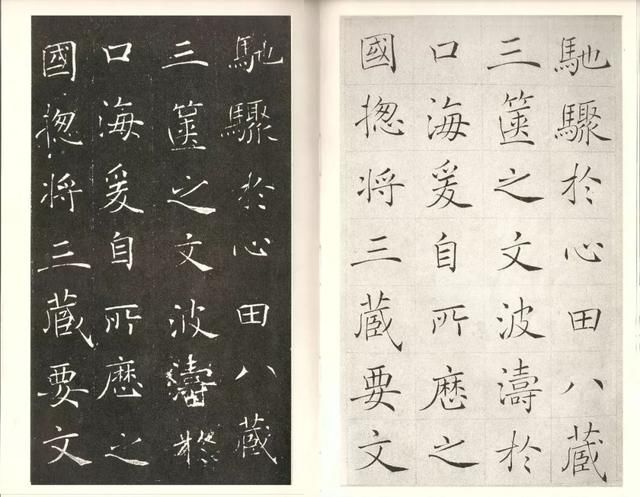 馳驟於心田八藏
三篋之文波濤於
口海爰自所歷之
國揔将三藏要文
馳驟於心田八藏
三篋之文波濤於
口海爰自所歷之
國揔将三藏要文